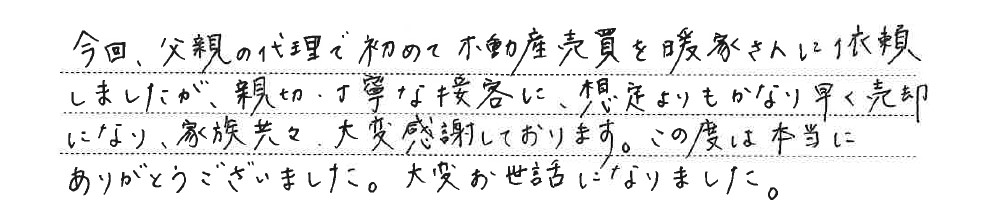 今回、父親の代理で初めて不動産売買を暖家さんに依頼
しましたが、親切・丁寧な接客に、想定よりもかなり早く売却
になり、家族共々、大変感謝しております。この度は本当に
ありがとうございました。大変お世話になりました。